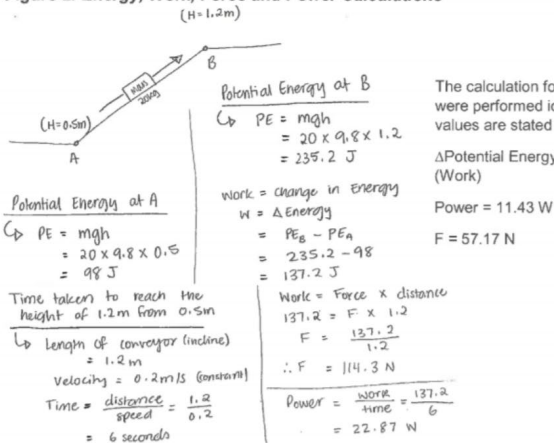 (H=1.2m)
B
mass
20kg
(H=0.5m)
A
Potential Energy at A
PE = mgh
= 20 x 9.8 x 0.5
= 98 J
Time taken to reach the
height of 1.2m from 0.5m
Length of conveyor (incline)
= 1.2m
Velocity = 0.2m/s (constant)
Time = distance/speed = 1.2/0.2
= 6 seconds
Potential Energy at B
PE = mgh
= 20 x 9.8 x 1.2
= 235.2 J
Work = change in Energy
W = Δ Energy
= PEB - PEA
= 235.2 - 98
= 137.2 J
Work = Force x distance
137.2 = F x 1.2
F = 137.2/1.2
∴ F = 114.3 N
Power = work/time = 137.2/6
= 22.87 W
The calculation
were performed
values are stated
ΔPotential Energy
(Work)
Power = 11.43 W
F = 57.17 N